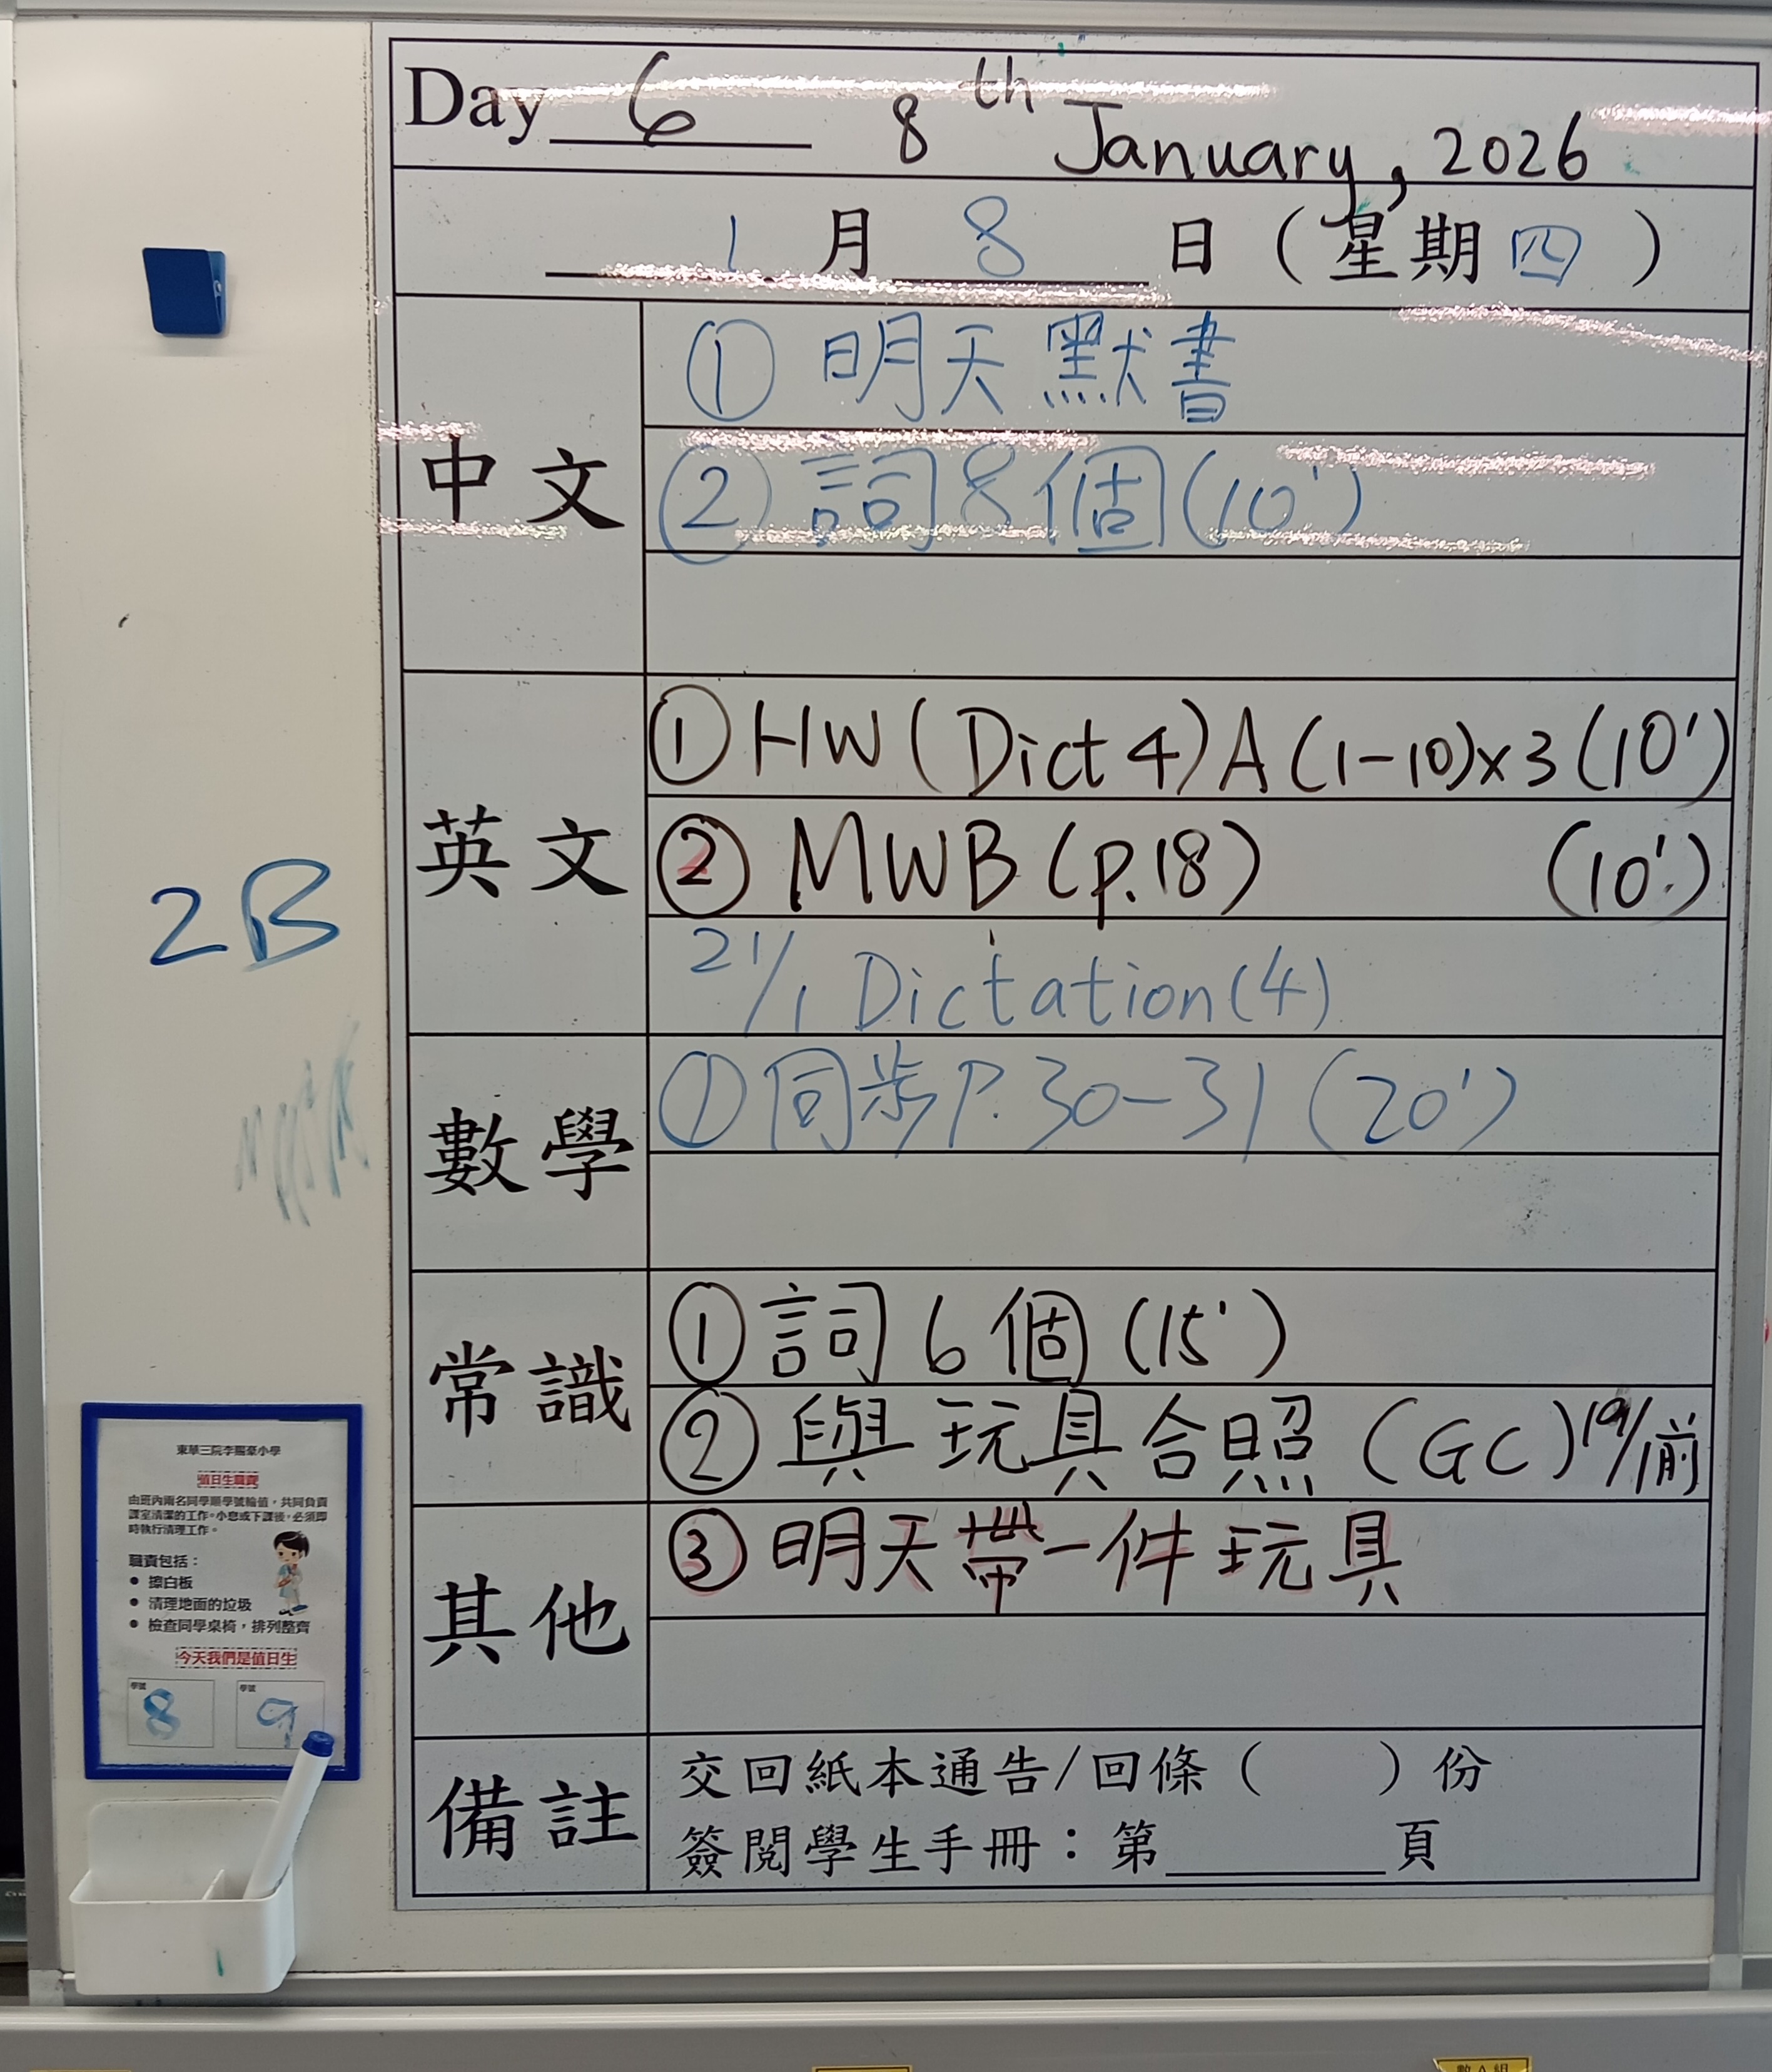 Day 6 8th January, 2026
1月8日（星期四）
中文
① 明天默書
② 詞8個(10')
英文
① HW (Dict 4) A (1-10)x3 (10')
② MWB (p.18) (10')
21/1 Dictation(4)
數學
① 同步P.30-31 (20')
常識
① 詞6個 (15')
② 與玩具合照 (GC) 19/1前
其他
③ 明天帶一件玩具
備註
交回紙本通告/回條（　　）份
簽閱學生手冊：第______頁
2B
東華三院李賜豪小學
值日生職責
由班內兩名同學順學號輪值，共同負責
課室清潔的工作。小息或下課後，必須即
時執行清理工作。
職責包括：
● 擦白板
● 清理地面的垃圾
● 檢查同學桌椅，排列整齊
今天我們是值日生
學號 8
學號 9